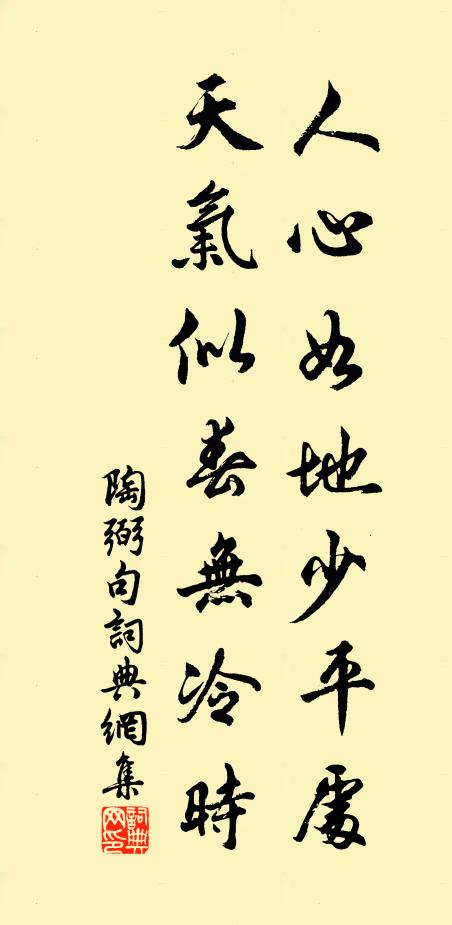 人心如地少平處
天氣似春無冷時
陶弼句詞典網集
詞典網印